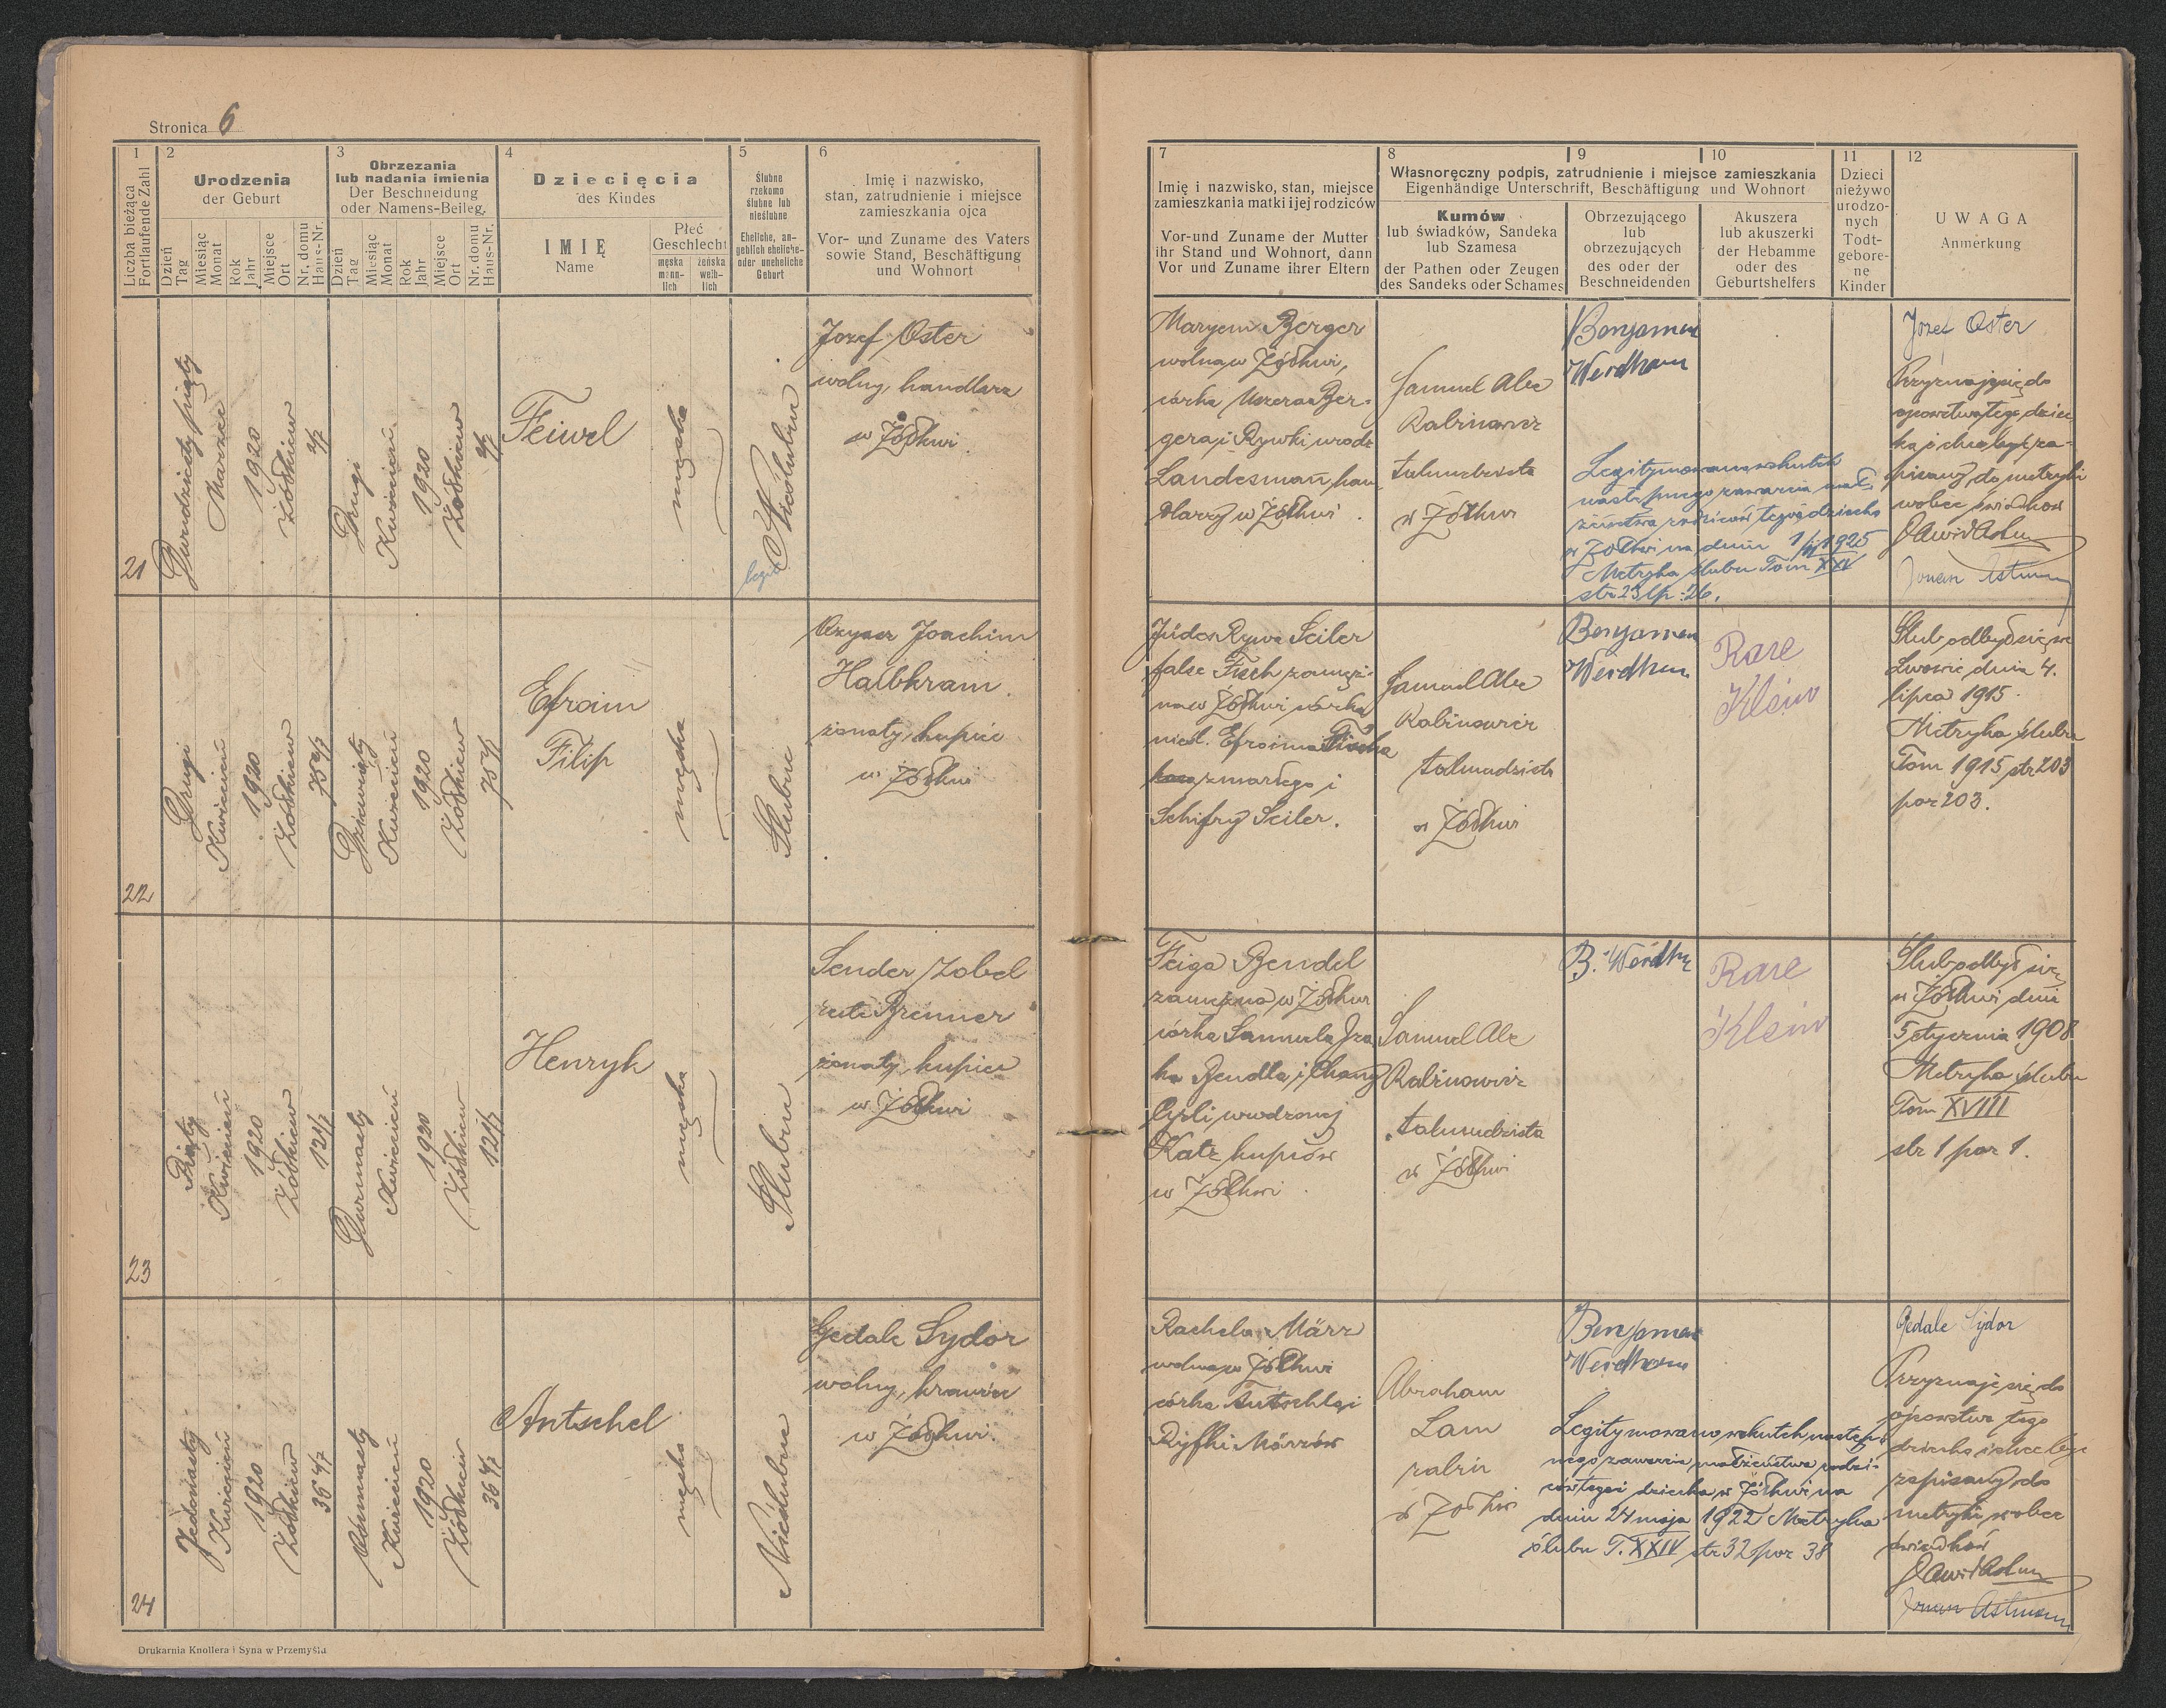 Stronica 6
1
Liczba bieżąca
Fortlaufende Zahl
2
Urodzenia
der Geburt
Dzień
Tag
Miesiąc
Monat
Rok
Jahr
Miejsce
Ort
Nr. domu
Haus-Nr.
3
Obrzezania
lub nadania imienia
Der Beschneidung
oder Namens-Beileg.
Dzień
Tag
Miesiąc
Monat
Rok
Jahr
Miejsce
Ort
Nr. domu
Haus-Nr.
4
Dziecięcia
des Kindes
IMIĘ
Name
Płeć
Geschlecht
męska
männ-
lich
żeńska
weib-
lich
5
Ślubne
rzekomo
ślubne lub
nieślubne
Eheliche, an-
geblich eheliche-
oder uneheliche
Geburt
6
Imię i nazwisko,
stan, zatrudnienie i miejsce
zamieszkania ojca
Vor- und Zuname des Vaters
sowie Stand, Beschäftigung
und Wohnort
7
Imię i nazwisko, stan, miejsce
zamieszkania matki i jej rodziców
Vor-und Zuname der Mutter
ihr Stand und Wohnort, dann
Vor und Zuname ihrer Eltern
8
9
10
Własnoręczny podpis, zatrudnienie i miejsce zamieszkania
Eigenhändige Unterschrift, Beschäftigung und Wohnort
Kumów
lub świadków, Sandeka
lub Szamesa
der Pathen oder Zeugen
des Sandeks oder Schames
Obrzezującego
lub
obrzezujących
des oder der
Beschneidenden
Akuszera
lub akuszerki
der Hebamme
oder des
Geburtshelfers
11
Dzieci
nieżywo
urodzo-
nych
Todt-
gebore-
ne
Kinder
12
UWAGA
Anmerkung
21
Dwudziesty piąty
Marzec
1920
Żółkiew
Drugi
Kwiecień
1920
Żółkiew
Feiwel
męska
Nieślubne
Jozef Oster
wolny, handlarz
w Żółkwi
Maryem Berger
wolna w Żółkwi,
córka Ber-
gera i Rywki urodz
Landesman, han
dlarzy w Żółkwi.
Samuel Abe
Rabinowicz
talmudzista
w Żółkwi
Benjamen
Werdham
Legitymowano wskutek
następnego zawarcia mał-
żeństwa rodziców tego dziecka
w Żółkwi na dniu 1925
Metryka ślubu Tom XXV
str 23 lp: 26.
Jozef Oster
Przyznaję się do
ojcostwa tego dziec
ka i chcę być za-
pisany do metryki
wobec świadków
22
Drugi
Kwiecień
1920
Żółkiew
Dziewiąty
Kwiecień
1920
Żółkiew
Efroim
Filip
męska
Ślubne
Joachim
Halbkram
żonaty, kupiec
w Żółkwi
Rywa Seiler
false Fisch zamęż-
na w Żółkwi córka
nieśl. Efroima
zmarłego i
Schifry Seiler.
Samuel Abe
Rabinowicz
talmudzista
w Żółkwi
Benjamen
Rare
Klein
Ślub odbył się we
Lwowie dnia 4.
lipca 1915.
Metryka ślubu
Tom 1915 str 203
por 203.
23
Piąty
Kwiecień
1920
Żółkiew
Dwunasty
Kwiecień
1920
Żółkiew
Henryk
męska
Ślubne
Sender Zobel
recte Brenner
żonaty, kupiec
w Żółkwi
Feiga Bendel
zamężna w Żółkwi
córka Samuela Iza
ka Bendla i Chany
Cyrli urodzonej
Katz kupców
w Żółkwi.
Samuel Abe
Rabinowicz
talmudzista
w Żółkwi
Rare
Klein
Ślub odbył się
w Żółkwi dnia
5 stycznia 1908
Metryka ślubu
Tom XVIII
str 1 por 1.
24
Jedenasty
Kwiecień
1920
Żółkiew
Ośmnasty
Kwiecień
1920
Żółkiew
Antschel
męska
Nieślubne
Gedale Sydor
wolny, krawiec
w Żółkwi.
Rachela März
wolna w Żółkwi
córka Antschla i
Ryfki Märzów
Abraham
Lam
rabin
w Żółkwi
Benjamen
Legitymowano wskutek następ
nego zawarcia małżeństwa rodzi-
ców tegoż dziecka w Żółkwi na
dniu 24 maja 1922 Metryka
ślubu T. XXIV str 32 por 38
Gedale Sydor
Przyznaję się do
ojcostwa tego
dziecka i chcę być
zapisany do
metryki wobec
świadków
Drukarnia Knollera i Syna w Przemyślu